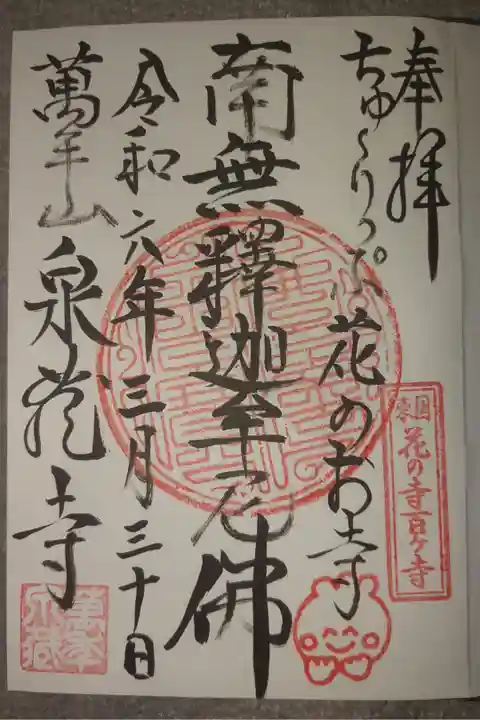 奉拝
ちゅ〜りっぷ花のお寺
東国花の寺百ヶ寺
南無釋迦牟尼佛
令和六年三月三十日
萬年山泉蔵寺